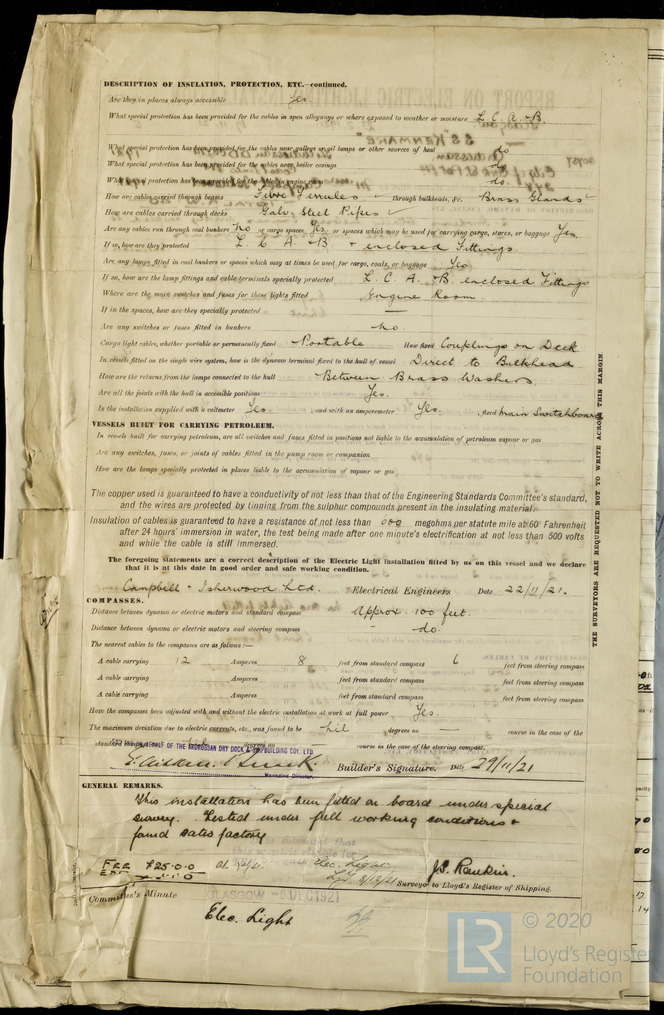 DESCRIPTION OF INSULATION, PROTECTION, ETC.—continued.
Are they in places always accessible Yes.
What special protection has been provided for the cables in open alleyways or where exposed to weather or moisture L. C. A. + B.
What special protection has been provided for the cables near galleys or oil lamps or other sources of heat do
What special protection has been provided for the cables near boiler casings do
What special protection has been provided for the cables in engine room do.
How are cables carried through beams Fibre Ferrules through bulkheads, &c. Brass Glands
How are cables carried through decks Galv. Steel Pipes
Are any cables run through coal bunkers No or cargo spaces Yes or spaces which may be used for carrying cargo, stores, or baggage Yes
If so, how are they protected L. C. A. + B + enclosed Fittings.
Are any lamps fitted in coal bunkers or spaces which may at times be used for cargo, coals, or baggage Yes
If so, how are the lamp fittings and cable terminals specially protected L. C. A. + B. enclosed Fittings
Where are the main switches and fuses for these lights fitted Engine Room.
If in the spaces, how are they specially protected —
Are any switches or fuses fitted in bunkers No.
Cargo light cables, whether portable or permanently fixed Portable How fixed Couplings on Deck
In vessels fitted on the single wire system, how is the dynamo terminal fixed to the hull of vessel Direct to Bulkhead
How are the returns from the lamps connected to the hull Between Brass Washers.
Are all the joints with the hull in accessible positions Yes.
Is the installation supplied with a voltmeter Yes. , and with an amperemeter Yes. , fixed Main Switchboard
VESSELS BUILT FOR CARRYING PETROLEUM.
In vessels built for carrying petroleum, are all switches and fuses fitted in positions not liable to the accumulation of petroleum vapour or gas
Are any switches, fuses, or joints of cables fitted in the pump room or companion
How are the lamps specially protected in places liable to the accumulation of vapour or gas
The copper used is guaranteed to have a conductivity of not less than that of the Engineering Standards Committee's standard,
and the wires are protected by tinning from the sulphur compounds present in the insulating material.
Insulation of cables is guaranteed to have a resistance of not less than 600 megohms per statute mile at 60° Fahrenheit
after 24 hours' immersion in water, the test being made after one minute's electrification at not less than 500 volts
and while the cable is still immersed.
The foregoing statements are a correct description of the Electric Light installation fitted by us on this vessel and we declare
that it is at this date in good order and safe working condition.
Campbell + Isherwood Ltd. Electrical Engineers Date 22/11/21.
COMPASSES.
Distance between dynamo or electric motors and standard compass Approx. 100 feet.
Distance between dynamo or electric motors and steering compass do.
The nearest cables to the compasses are as follows:—
A cable carrying 12 Amperes 8 feet from standard compass 6 feet from steering compass
A cable carrying Amperes feet from standard compass feet from steering compass
A cable carrying Amperes feet from standard compass feet from steering compass
How the compasses been adjusted with and without the electric installation at work at full power Yes.
The maximum deviation due to electric currents, etc., was found to be Nil degrees on — course in the case of the
standard compass degrees on course in the case of the steering compass.
FOR AND ON BEHALF OF THE ARDROSSAN DRY DOCK & SHIPBUILDING CO., LTD
Managing Director. Builder's Signature. Date 29/11/21
GENERAL REMARKS.
This installation has been fitted on board under special
survey. Tested under full working conditions +
found satisfactory
FEE £25.0.0
Elec. Light
J.S. Rankin.
Surveyor to Lloyd's Register of Shipping.
Committee's Minute GLASGOW -6 DEC 1921
Elec. Light
THE SURVEYORS ARE REQUESTED NOT TO WRITE ACROSS THIS MARGIN
LR © 2020
Lloyd's Register
Foundation